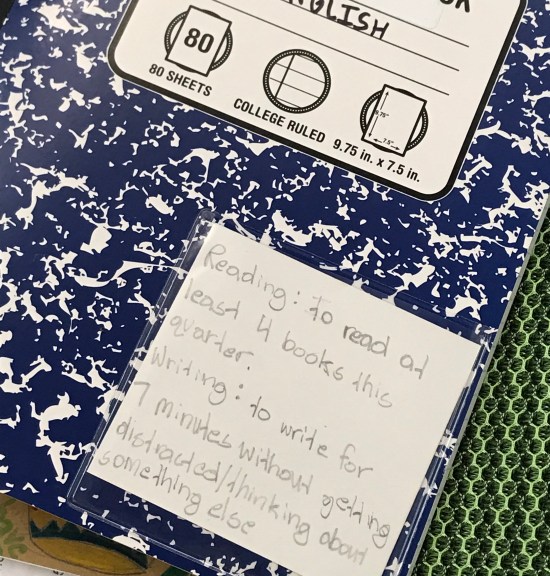 ENGLISH
80
80 SHEETS
COLLEGE RULED
9.75 in. x 7.5 in.
7.5"
Reading: to read at
least 4 books this
quarter.
Writing: to write for
7 minutes without getting
distracted/thinking about
something else